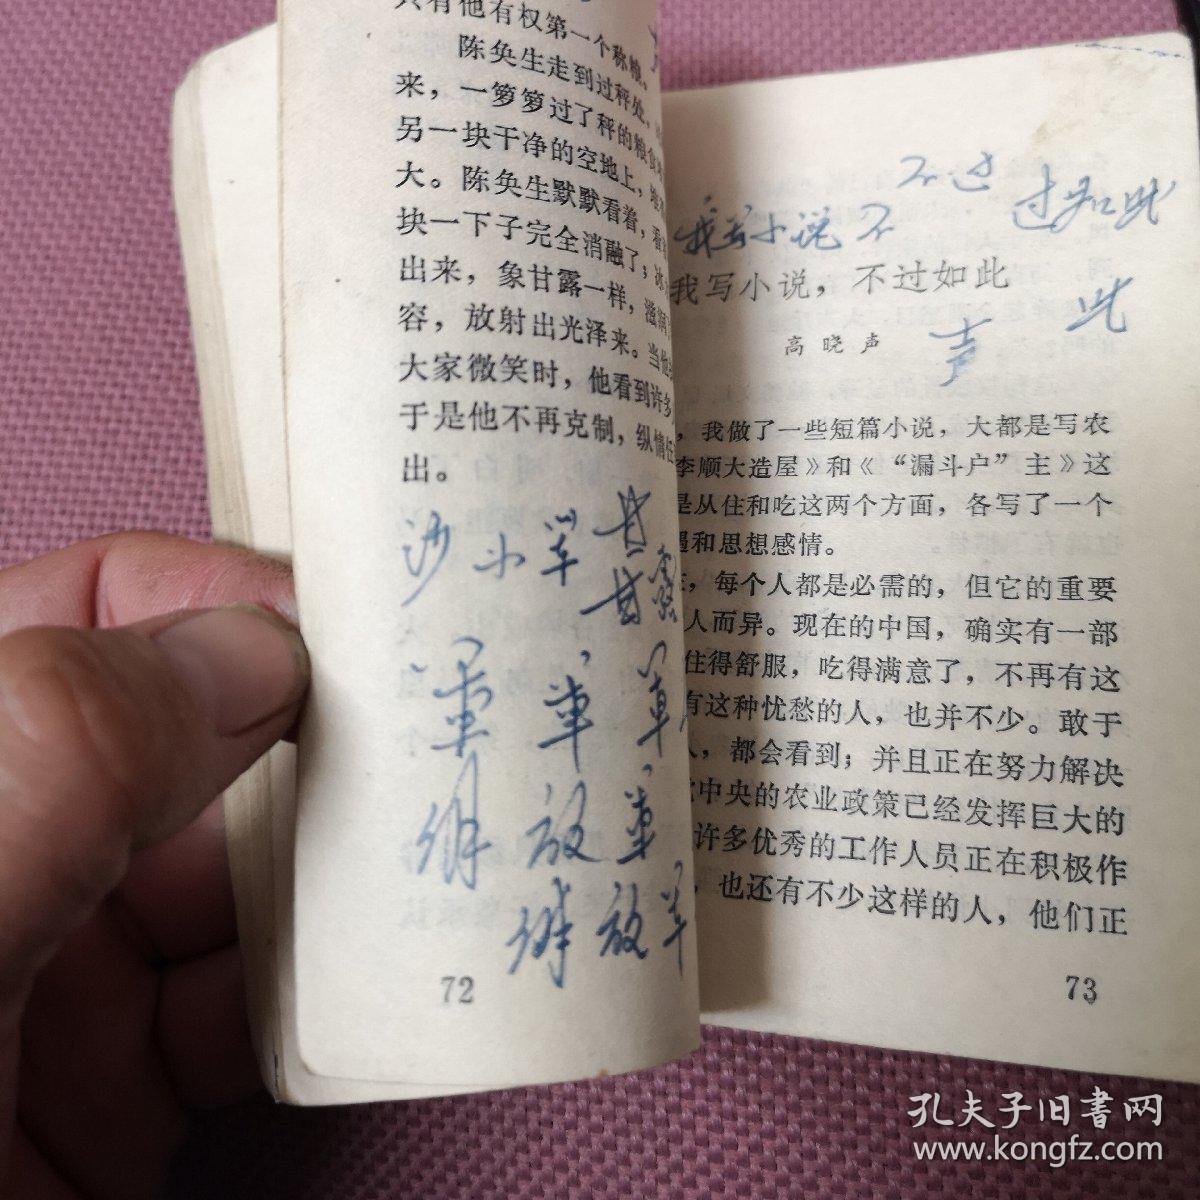 只有他有权第一个称粮。
陈奂生走到过秤处，
来，一箩箩过了秤的粮食
另一块干净的空地上，
大。陈奂生默默看着，看
块一下子完全消融了；冰
出来，象甘露一样，滋润
容，放射出光泽来。当他
大家微笑时，他看到许多
于是他不再克制，纵情任
出。
沙 小
甘
甘露
放
放
72
不过
过如此
我写小说 不
我写小说，不过如此
此
高晓声
声
，我做了一些短篇小说，大都是写农
李顺大造屋》和《“漏斗户”主》这
是从住和吃这两个方面，各写了一个
遇和思想感情。
，每个人都是必需的，但它的重要
人而异。现在的中国，确实有一部
住得舒服，吃得满意了，不再有这
有这种忧愁的人，也并不少。敢于
人，都会看到；并且正在努力解决
中央的农业政策已经发挥巨大的
许多优秀的工作人员正在积极作
，也还有不少这样的人，他们正
73
孔夫子旧书网
www.kongfz.com